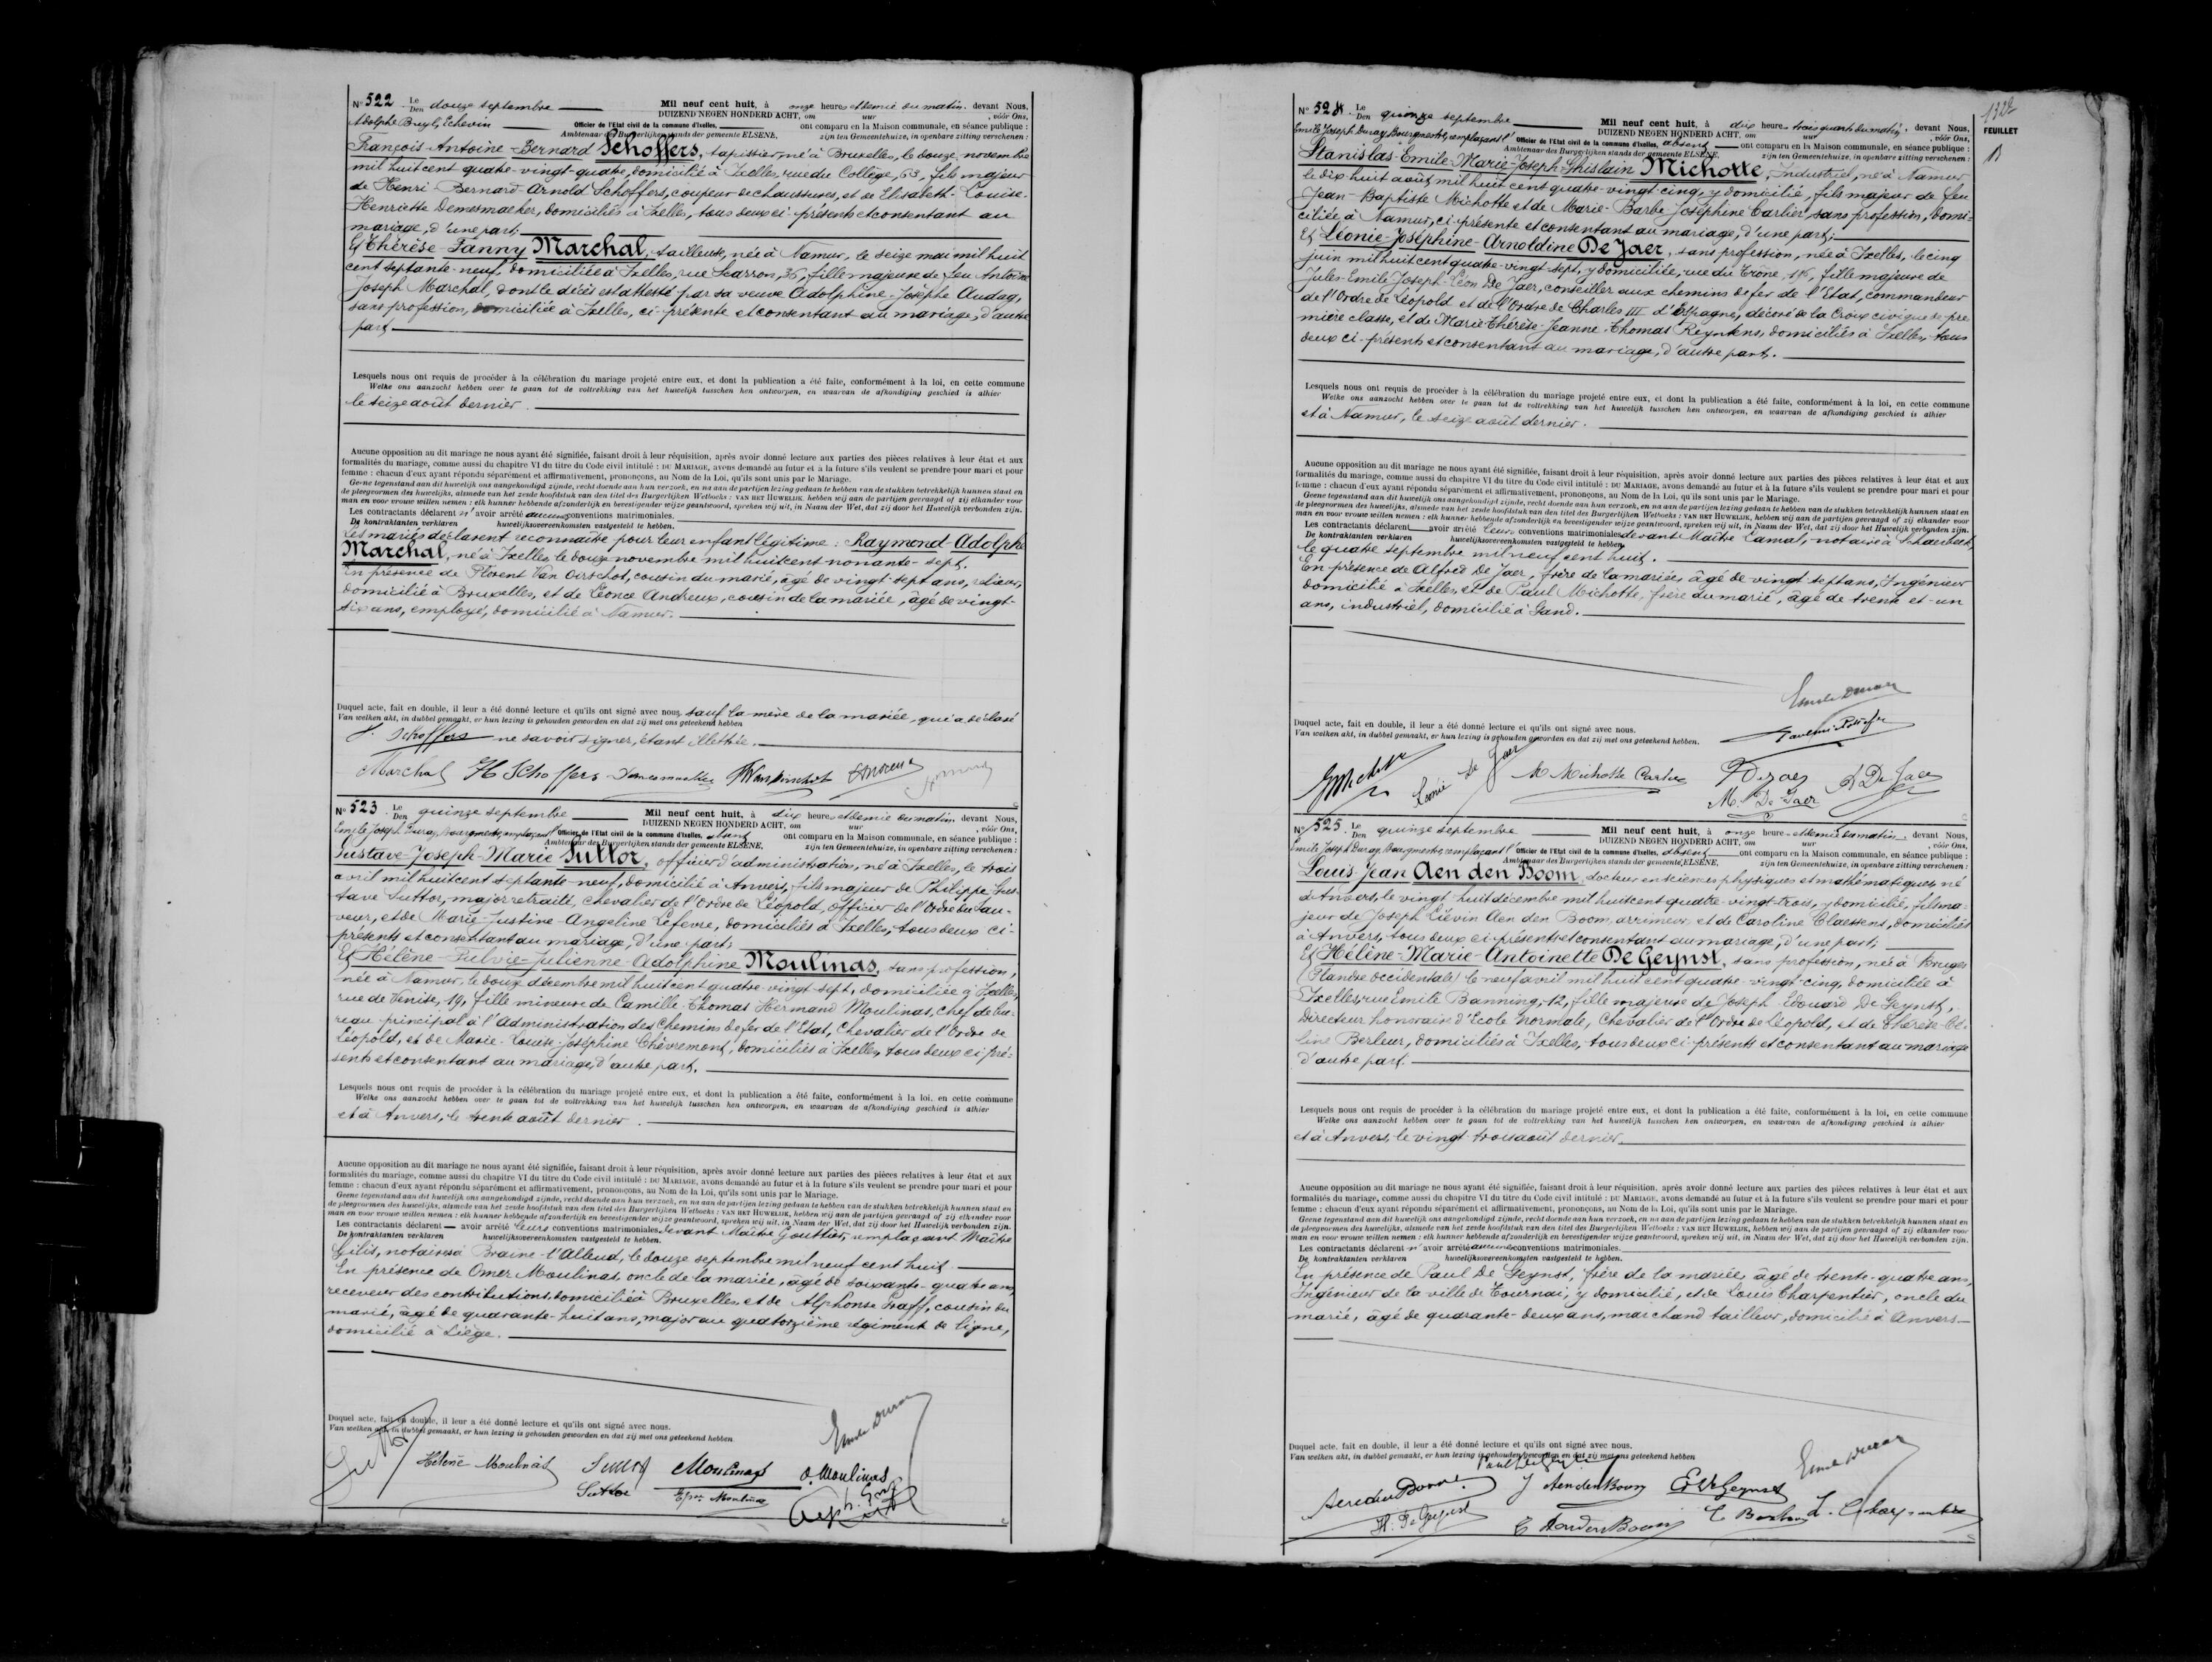 N° 522 Le Den douze septembre Mil neuf cent huit, à onze heures et demie du matin, devant Nous,
DUIZEND NEGEN HONDERD ACHT, om uur , vóór Ons,
Adolphe Buyl, Echevin Officier de l'Etat civil de la commune d'Ixelles, ont comparu en la Maison communale, en séance publique :
Ambtenaar des Burgerlijken stands der gemeente ELSENE, zijn ten Gemeentehuize, in openbare zitting verschenen :
François-Antoine-Bernard Schoffers, tapissier, né à Bruxelles, le douze novembre
mil huit cent quatre-vingt-quatre, domicilié à Ixelles, rue du Collège, 63, fils majeur
de Henri-Bernard-Arnold Schoffers, coupeur de chaussures, et de Elisabeth-Louise-
Henriette Demesmaeker, domiciliés à Ixelles, tous deux ci-présents et consentant au
mariage, d'une part;
Et Thérèse-Fanny Marchal, tailleuse, née à Namur, le seize mai mil huit
cent septante-neuf, domiciliée à Ixelles, rue Scarron, 36, fille majeure de feu Antoine
Joseph Marchal, dont le décès est attesté par sa veuve Adolphine-Josèphe Audag,
sans profession, domiciliée à Ixelles, ci-présente et consentant au mariage, d'autre
part
Lesquels nous ont requis de procéder à la célébration du mariage projeté entre eux, et dont la publication a été faite, conformément à la loi, en cette commune
Welke ons aanzocht hebben over te gaan tot de voltrekking van het huwelijk tusschen hen ontworpen, en waarvan de afkondiging geschied is alhier
le seize août dernier.
Aucune opposition au dit mariage ne nous ayant été signifiée, faisant droit à leur réquisition, après avoir donné lecture aux parties des pièces relatives à leur état et aux
formalités du mariage, comme aussi du chapitre VI du titre du Code civil intitulé : DU MARIAGE, avons demandé au futur et à la future s'ils veulent se prendre pour mari et pour
femme : chacun d'eux ayant répondu séparément et affirmativement, prononçons, au Nom de la Loi, qu'ils sont unis par le Mariage.
Geene tegenstand aan dit huwelijk ons aangekondigd zijnde, recht doende aan hun verzoek, en na aan de partijen lezing gedaan te hebben van de stukken betrekkelijk hunnen staat en
de pleegvormen des huwelijks, alsmede van het zesde hoofdstuk van den titel des Burgerlijken Wetboeks : VAN HET HUWELIJK, hebben wij aan de partijen gevraagd of zij elkander voor
man en voor vrouw willen nemen : elk hunner hebbende afzonderlijk en bevestigender wijze geantwoord, spreken wij uit, in Naam der Wet, dat zij door het Huwelijk verbonden zijn.
Les contractants déclarent n'avoir arrêté aucunes conventions matrimoniales.
De kontraktanten verklaren huwelijksovereenkomsten vastgesteld te hebben.
Les mariés déclarent reconnaître pour leur enfant légitime : Raymond-Adolphe
Marchal, né à Ixelles le douze novembre mil huit cent nonante-sept.
En présence de Florent Van Oirschot, cousin du marié, âgé de vingt-sept ans, relieur,
domicilié à Bruxelles, et de Léonce Andreux, cousin de la mariée, âgé de vingt-
six ans, employé, domicilié à Namur.
Duquel acte, fait en double, il leur a été donné lecture et qu'ils ont signé avec nous, sauf la mère de la mariée, qui a déclaré
Van welken akt, in dubbel gemaakt, er hun lezing is gehouden geworden en dat zij met ons geteekend hebben
F. Schoffers ne savoir signer, étant illettrée.
Marchal H Schoffers Demesmaeker
N° 523 Le Den quinze septembre Mil neuf cent huit, à dix heures et demie du matin, devant Nous,
DUIZEND NEGEN HONDERD ACHT, om uur , vóór Ons,
Emile Joseph Duray, Bourgmestre, remplaçant l'Officier de l'Etat civil de la commune d'Ixelles, absent ont comparu en la Maison communale, en séance publique :
Ambtenaar des Burgerlijken stands der gemeente ELSENE, zijn ten Gemeentehuize, in openbare zitting verschenen :
Gustave-Joseph-Marie Suttor, officier d'administration, né à Ixelles, le trois
avril mil huit cent septante-neuf, domicilié à Anvers, fils majeur de Philippe Gus-
tave Suttor, major retraité, Chevalier de l'Ordre de Léopold, officier de l'Ordre du Sau-
veur, et de Marie-Justine-Angeline Lefevre, domiciliés à Ixelles, tous deux ci-
présents et consentant au mariage, d'une part;
Et Hélène-Fulvie-Julienne-Adolphine Moulinas, sans profession,
née à Namur, le douze décembre mil huit cent quatre-vingt-sept, domiciliée à Ixelles,
rue de Venise, 19, fille mineure de Camille-Thomas Hermand Moulinas, chef de bu-
reau principal à l'Administration des Chemins de fer de l'Etat, Chevalier de l'Ordre de
Léopold, et de Marie-Louise-Joséphine Chèvremont, domiciliés à Ixelles, tous deux ci pré-
sents et consentant au mariage, d'autre part.
Lesquels nous ont requis de procéder à la célébration du mariage projeté entre eux, et dont la publication a été faite, conformément à la loi, en cette commune
Welke ons aanzocht hebben over te gaan tot de voltrekking van het huwelijk tusschen hen ontworpen, en waarvan de afkondiging geschied is alhier
et à Anvers, le trente août dernier.
Aucune opposition au dit mariage ne nous ayant été signifiée, faisant droit à leur réquisition, après avoir donné lecture aux parties des pièces relatives à leur état et aux
formalités du mariage, comme aussi du chapitre VI du titre du Code civil intitulé : DU MARIAGE, avons demandé au futur et à la future s'ils veulent se prendre pour mari et pour
femme : chacun d'eux ayant répondu séparément et affirmativement, prononçons, au Nom de la Loi, qu'ils sont unis par le Mariage.
Geene tegenstand aan dit huwelijk ons aangekondigd zijnde, recht doende aan hun verzoek, en na aan de partijen lezing gedaan te hebben van de stukken betrekkelijk hunnen staat en
de pleegvormen des huwelijks, alsmede van het zesde hoofdstuk van den titel des Burgerlijken Wetboeks : VAN HET HUWELIJK, hebben wij aan de partijen gevraagd of zij elkander voor
man en voor vrouw willen nemen : elk hunner hebbende afzonderlijk en bevestigender wijze geantwoord, spreken wij uit, in Naam der Wet, dat zij door het Huwelijk verbonden zijn.
Les contractants déclarent avoir arrêté leurs conventions matrimoniales devant Maître Gouttier, remplaçant Maître
De kontraktanten verklaren huwelijksovereenkomsten vastgesteld te hebben.
Gilis, notaires à Braine-l'Alleud, le douze septembre mil neuf cent huit.
En présence de Omer Moulinas, oncle de la mariée, âgé de soixante-quatre ans,
receveur des contributions, domicilié à Bruxelles, et de Alphonse Graff, cousin du
marié, âgé de quarante-huit ans, major au quatorzième régiment de ligne,
domicilié à Liège.
Duquel acte, fait en double, il leur a été donné lecture et qu'ils ont signé avec nous.
Van welken akt, in dubbel gemaakt, er hun lezing is gehouden geworden en dat zij met ons geteekend hebben
Emile Duray
Suttor Hélène Moulinas Suttor Moulinas O. Moulinas
1322
FEUILLET
N° 524 Le Den quinze septembre Mil neuf cent huit, à dix heures trois quarts du matin, devant Nous,
DUIZEND NEGEN HONDERD ACHT, om uur , vóór Ons,
Emile Joseph Duray, Bourgmestre, remplaçant l'Officier de l'Etat civil de la commune d'Ixelles, absent ont comparu en la Maison communale, en séance publique :
Ambtenaar des Burgerlijken stands der gemeente ELSENE, zijn ten Gemeentehuize, in openbare zitting verschenen :
Stanislas-Emile-Marie-Joseph-Ghislain Michotte, Industriel, né à Namur
le dix-huit août mil huit cent quatre-vingt-cinq, y domicilié, fils majeur de feu
Jean-Baptiste Michotte et de Marie-Barbe Joséphine Carlier, sans profession, domi-
ciliée à Namur, ci-présente et consentant au mariage, d'une part;
Et Léonie-Joséphine-Arnoldine De Jaer, sans profession, née à Ixelles, le cinq
juin mil huit cent quatre-vingt-sept, y domiciliée, rue du Trône, fille majeure de
Jules-Emile Joseph-Léon De Jaer, conseiller aux chemins de fer de l'Etat, commandeur
de l'Ordre de Léopold et de l'Ordre de Charles III d'Espagne, décoré de la Croix civique de pre
mière classe, et de Marie-Thérèse-Jeanne-Thomas Reyntens, domiciliés à Ixelles, tous
deux ci-présents et consentant au mariage, d'autre part.
Lesquels nous ont requis de procéder à la célébration du mariage projeté entre eux, et dont la publication a été faite, conformément à la loi, en cette commune
Welke ons aanzocht hebben over te gaan tot de voltrekking van het huwelijk tusschen hen ontworpen, en waarvan de afkondiging geschied is alhier
et à Namur, le seize août dernier.
Aucune opposition au dit mariage ne nous ayant été signifiée, faisant droit à leur réquisition, après avoir donné lecture aux parties des pièces relatives à leur état et aux
formalités du mariage, comme aussi du chapitre VI du titre du Code civil intitulé : DU MARIAGE, avons demandé au futur et à la future s'ils veulent se prendre pour mari et pour
femme : chacun d'eux ayant répondu séparément et affirmativement, prononçons, au Nom de la Loi, qu'ils sont unis par le Mariage.
Geene tegenstand aan dit huwelijk ons aangekondigd zijnde, recht doende aan hun verzoek, en na aan de partijen lezing gedaan te hebben van de stukken betrekkelijk hunnen staat en
de pleegvormen des huwelijks, alsmede van het zesde hoofdstuk van den titel des Burgerlijken Wetboeks : VAN HET HUWELIJK, hebben wij aan de partijen gevraagd of zij elkander voor
man en voor vrouw willen nemen : elk hunner hebbende afzonderlijk en bevestigender wijze geantwoord, spreken wij uit, in Naam der Wet, dat zij door het Huwelijk verbonden zijn.
Les contractants déclarent avoir arrêté leurs conventions matrimoniales devant Maître Lamal, notaire à Schaerbeek,
De kontraktanten verklaren huwelijksovereenkomsten vastgesteld te hebben
le quatre septembre mil neuf cent huit.
En présence de Alfred De Jaer, frère de la mariée, âgé de vingt sept ans, Ingénieur
domicilié à Ixelles, et de Paul Michotte, frère du marié, âgé de trente-et-un
ans, industriel, domicilié à Gand.
Emile Duray
Duquel acte, fait en double, il leur a été donné lecture et qu'ils ont signé avec nous.
Van welken akt, in dubbel gemaakt, er hun lezing is gehouden geworden en dat zij met ons geteekend hebben.
Léonie De Jaer M Michotte Carlier De Jaer A De Jaer
M. De Jaer
N° 525 Le Den quinze septembre Mil neuf cent huit, à onze heures et demie du matin, devant Nous,
DUIZEND NEGEN HONDERD ACHT, om uur , vóór Ons,
Emile Joseph Duray, Bourgmestre, remplaçant l'Officier de l'Etat civil de la commune d'Ixelles, absent ont comparu en la Maison communale, en séance publique :
Ambtenaar des Burgerlijken stands der gemeente ELSENE, zijn ten Gemeentehuize, in openbare zitting verschenen :
Louis Jean Aen den Boom, docteur en sciences physiques et mathématiques, né
à Anvers, le vingt-huit décembre mil huit cent quatre-vingt-trois, y domicilié, fils ma-
jeur de Joseph Liévin Aen den Boom, arrimeur, et de Caroline Claessens, domiciliés
à Anvers, tous deux ci-présents et consentant au mariage, d'une part;
Et Hélène-Marie-Antoinette De Geynst, sans profession, née à Bruges
(Flandre occidentale) le neuf avril mil huit cent quatre-vingt-cinq, domiciliée à
Ixelles, rue Emile Banning, 12, fille majeure de Joseph-Edouard De Geynst,
Directeur honoraire d'Ecole normale, Chevalier de l'Ordre de Léopold, et de Thérèse-Cé-
line Berleur, domiciliés à Ixelles, tous deux ci-présents et consentant au mariage
d'autre part.
Lesquels nous ont requis de procéder à la célébration du mariage projeté entre eux, et dont la publication a été faite, conformément à la loi, en cette commune
Welke ons aanzocht hebben over te gaan tot de voltrekking van het huwelijk tusschen hen ontworpen, en waarvan de afkondiging geschied is alhier
et à Anvers, le vingt-trois août dernier.
Aucune opposition au dit mariage ne nous ayant été signifiée, faisant droit à leur réquisition, après avoir donné lecture aux parties des pièces relatives à leur état et aux
formalités du mariage, comme aussi du chapitre VI du titre du Code civil intitulé : DU MARIAGE, avons demandé au futur et à la future s'ils veulent se prendre pour mari et pour
femme : chacun d'eux ayant répondu séparément et affirmativement, prononçons, au Nom de la Loi, qu'ils sont unis par le Mariage.
Geene tegenstand aan dit huwelijk ons aangekondigd zijnde, recht doende aan hun verzoek, en na aan de partijen lezing gedaan te hebben van de stukken betrekkelijk hunnen staat en
de pleegvormen des huwelijks, alsmede van het zesde hoofdstuk van den titel des Burgerlijken Wetboeks : VAN HET HUWELIJK, hebben wij aan de partijen gevraagd of zij elkander voor
man en voor vrouw willen nemen : elk hunner hebbende afzonderlijk en bevestigender wijze geantwoord, spreken wij uit, in Naam der Wet, dat zij door het Huwelijk verbonden zijn.
Les contractants déclarent n'avoir arrêté aucunes conventions matrimoniales.
De kontraktanten verklaren huwelijksovereenkomsten vastgesteld te hebben.
En présence de Paul De Geynst, frère de la mariée, âgé de trente-quatre ans,
Ingénieur de la ville de Tournai, y domicilié, et de Louis Charpentier, oncle du
marié, âgé de quarante-deux ans, marchand tailleur, domicilié à Anvers
Duquel acte, fait en double, il leur a été donné lecture et qu'ils ont signé avec nous.
Van welken akt, in dubbel gemaakt, er hun lezing is gehouden geworden en dat zij met ons geteekend hebben
Paul De Geynst Emile Duray
Aen den Boom J Aen den Boom Ed De Geynst
H. De Geynst C Aen den Boom C Berleur L. Charpentier